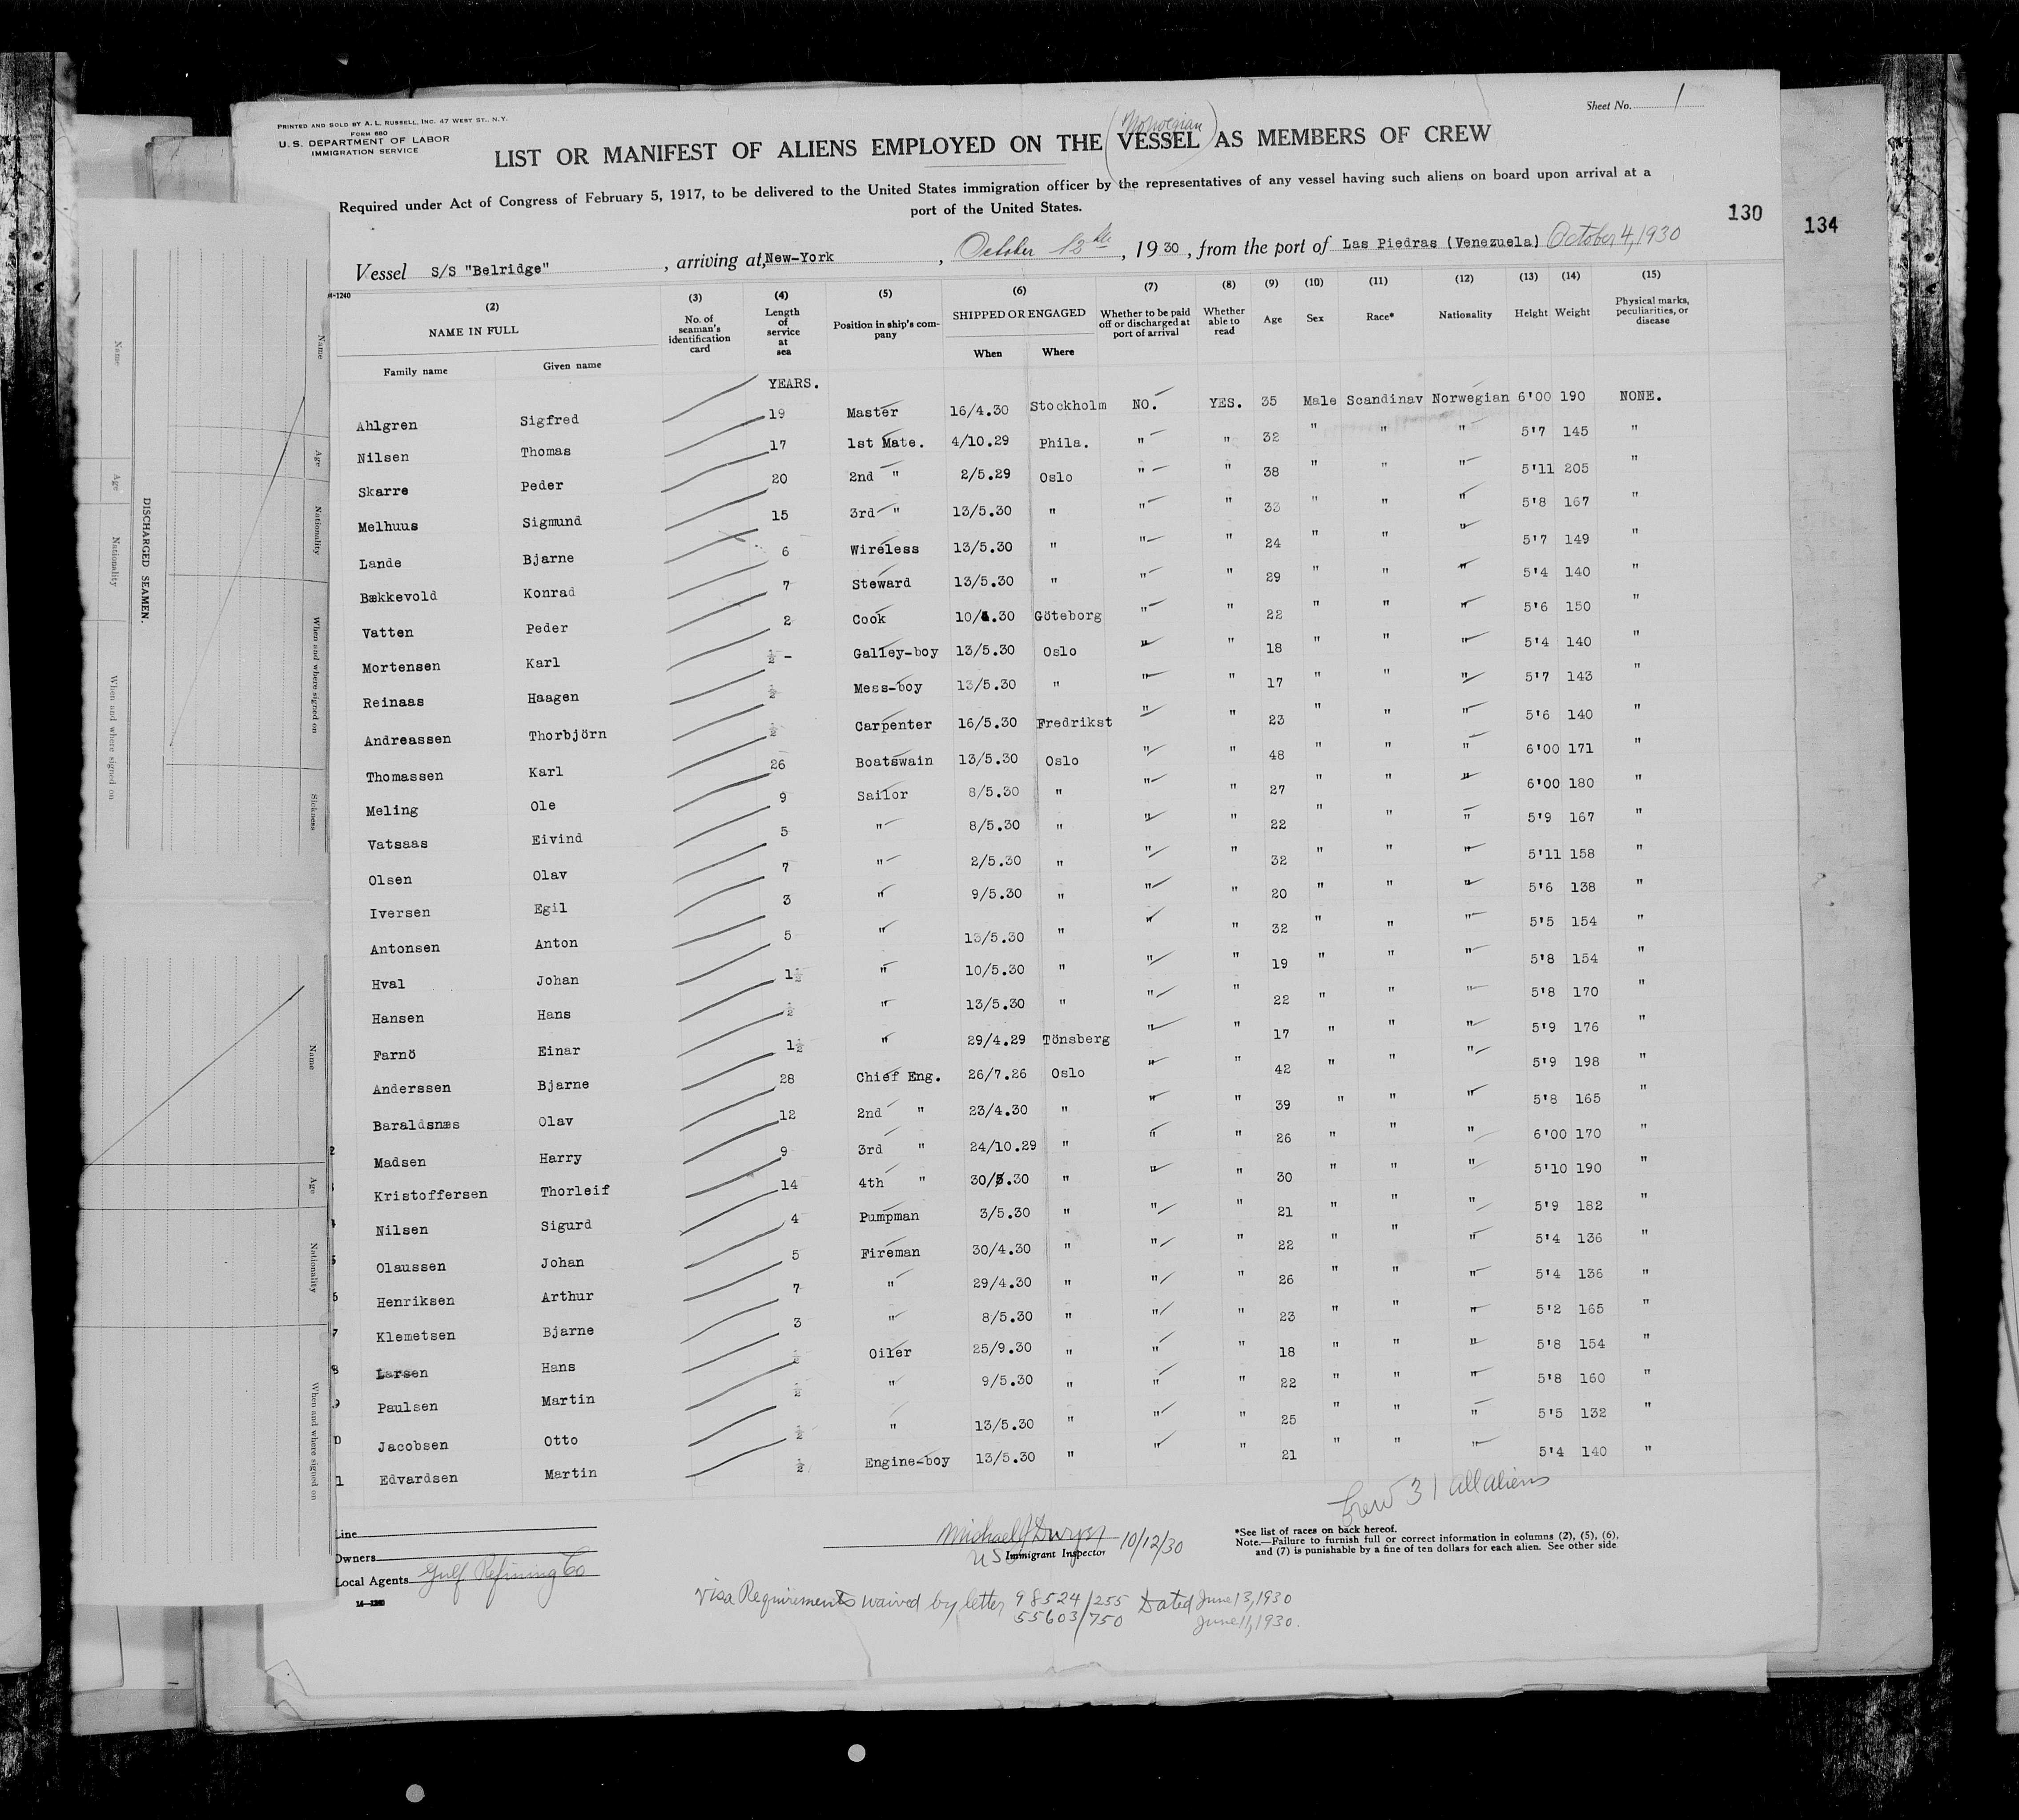 Sheet No. 1
PRINTED AND SOLD BY A. L. RUSSELL, INC. 47 WEST ST., N.Y.
FORM 680
U. S. DEPARTMENT OF LABOR
IMMIGRATION SERVICE
(Norwegian)
LIST OR MANIFEST OF ALIENS EMPLOYED ON THE VESSEL AS MEMBERS OF CREW
Required under Act of Congress of February 5, 1917, to be delivered to the United States immigration officer by the representatives of any vessel having such aliens on board upon arrival at a
port of the United States.
130
134
Vessel S/S "Belridge", arriving at, New-York, October 12th, 1930, from the port of Las Piedras (Venezuela) October 4, 1930
(2) (3) (4) (5) (6) (7) (8) (9) (10) (11) (12) (13) (14) (15)
NAME IN FULL No. of seaman's identification card Length of service at sea Position in ship's company SHIPPED OR ENGAGED Whether to be paid off or discharged at port of arrival Whether able to read Age Sex Race* Nationality Height Weight Physical marks, peculiarities, or disease
Family name Given name When Where
YEARS.
Ahlgren Sigfred 19 Master 16/4.30 Stockholm NO. YES. 35 Male Scandinav Norwegian 6'00 190 NONE.
Nilsen Thomas 17 1st Mate. 4/10.29 Phila. " " 32 " " " 5'7 145 "
Skarre Peder 20 2nd " 2/5.29 Oslo " " 38 " " " 5'11 205 "
Melhuus Sigmund 15 3rd " 13/5.30 " " " 33 " " " 5'8 167 "
Lande Bjarne 6 Wireless 13/5.30 " " " 24 " " " 5'7 149 "
Bækkevold Konrad 7 Steward 13/5.30 " " " 29 " " " 5'4 140 "
Vatten Peder 2 Cook 10/ .30 Göteborg " " 22 " " " 5'6 150 "
Mortensen Karl ½ - Galley-boy 13/5.30 Oslo " " 18 " " " 5'4 140 "
Reinaas Haagen ½ Mess-boy 13/5.30 " " " 17 " " " 5'7 143 "
Andreassen Thorbjörn ½ Carpenter 16/5.30 Fredrikst " " 23 " " " 5'6 140 "
Thomassen Karl 26 Boatswain 13/5.30 Oslo " " 48 " " " 6'00 171 "
Meling Ole 9 Sailor 8/5.30 " " " 27 " " " 6'00 180 "
Vatsaas Eivind 5 " 8/5.30 " " " 22 " " " 5'9 167 "
Olsen Olav 7 " 2/5.30 " " " 32 " " " 5'11 158 "
Iversen Egil 3 " 9/5.30 " " " 20 " " " 5'6 138 "
Antonsen Anton 5 " 13/5.30 " " " 32 " " " 5'5 154 "
Hval Johan 1½ " 10/5.30 " " " 19 " " " 5'8 154 "
Hansen Hans ½ " 13/5.30 " " " 22 " " " 5'8 170 "
Farnö Einar 1½ " 29/4.29 Tönsberg " " 17 " " " 5'9 176 "
Anderssen Bjarne 28 Chief Eng. 26/7.26 Oslo " " 42 " " " 5'9 198 "
Baraldsnæs Olav 12 2nd " 23/4.30 " " " 39 " " " 5'8 165 "
2 Madsen Harry 9 3rd " 24/10.29 " " " 26 " " " 6'00 170 "
Kristoffersen Thorleif 14 4th " 30/ .30 " " " 30 " " " 5'10 190 "
Nilsen Sigurd 4 Pumpman 3/5.30 " " " 21 " " " 5'9 182 "
Olaussen Johan 5 Fireman 30/4.30 " " " 22 " " " 5'4 136 "
6 Henriksen Arthur 7 " 29/4.30 " " " 26 " " " 5'4 136 "
7 Klemetsen Bjarne 3 " 8/5.30 " " " 23 " " " 5'2 165 "
8 Larsen Hans ½ Oiler 25/9.30 " " " 18 " " " 5'8 154 "
9 Paulsen Martin ½ " 9/5.30 " " " 22 " " " 5'8 160 "
0 Jacobsen Otto ½ " 13/5.30 " " " 25 " " " 5'5 132 "
1 Edvardsen Martin ½ Engine-boy 13/5.30 " " " 21 " " " 5'4 140 "
Crew 31 all aliens
Line
Owners
Local Agents Gulf Refining Co
10/12/30
US Immigrant Inspector
*See list of races on back hereof.
Note.—Failure to furnish full or correct information in columns (2), (5), (6),
and (7) is punishable by a fine of ten dollars for each alien. See other side
Visa Requirements waived by letter 98524/255 Dated June 13, 1930
55603/750 June 11, 1930.
DISCHARGED SEAMEN.
Name Age Nationality When and where signed on
Name Age Nationality When and where signed on Sickness
Name Age Nationality When and where signed on